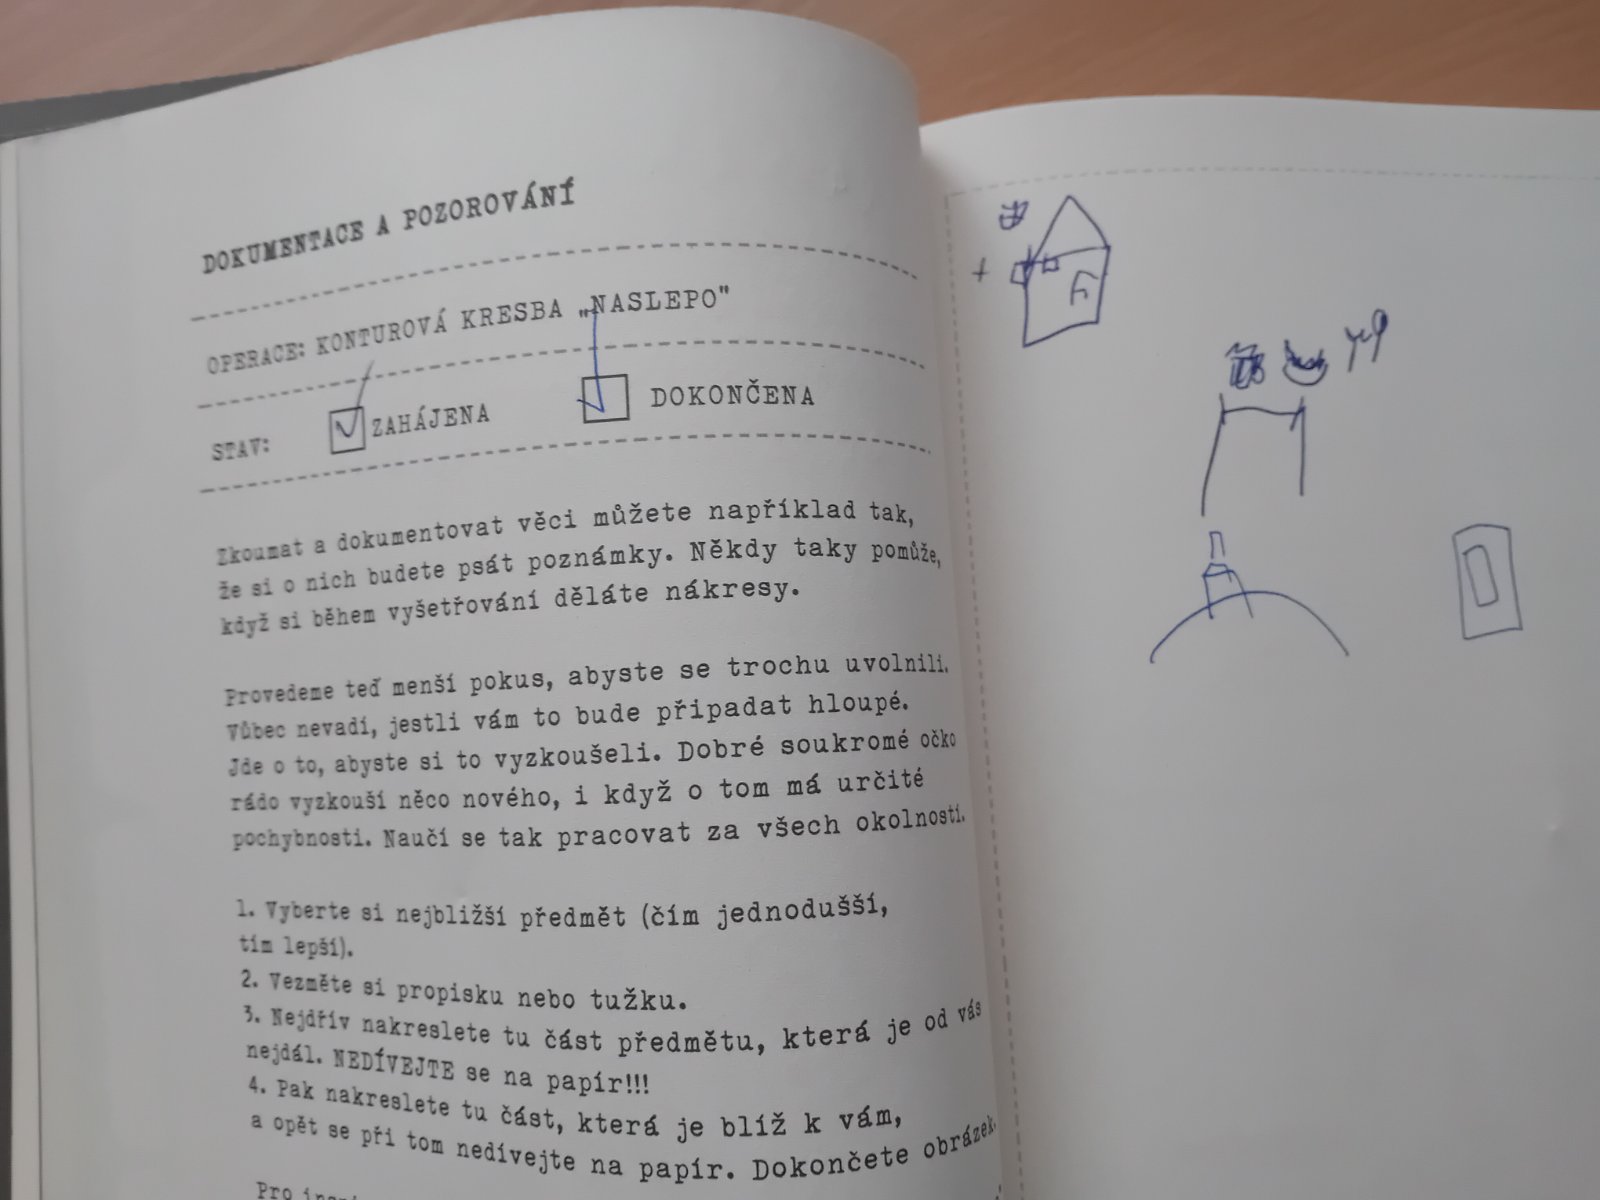 DOKUMENTACE A POZOROVÁNÍ
OPERACE: KONTUROVÁ KRESBA „NASLEPO"
STAV: ZAHÁJENA DOKONČENA
Zkoumat a dokumentovat věci můžete například tak,
že si o nich budete psát poznámky. Někdy taky pomůže,
když si během vyšetřování děláte nákresy.
Provedeme teď menší pokus, abyste se trochu uvolnili.
Vůbec nevadí, jestli vám to bude připadat hloupé.
Jde o to, abyste si to vyzkoušeli. Dobré soukromé očko
rádo vyzkouší něco nového, i když o tom má určité
pochybnosti. Naučí se tak pracovat za všech okolností.
1. Vyberte si nejbližší předmět (čím jednodušší,
tím lepší).
2. Vezměte si propisku nebo tužku.
3. Nejdřív nakreslete tu část předmětu, která je od vás
nejdál. NEDÍVEJTE se na papír!!!
4. Pak nakreslete tu část, která je blíž k vám,
a opět se při tom nedívejte na papír. Dokončete obrázek.
Pro